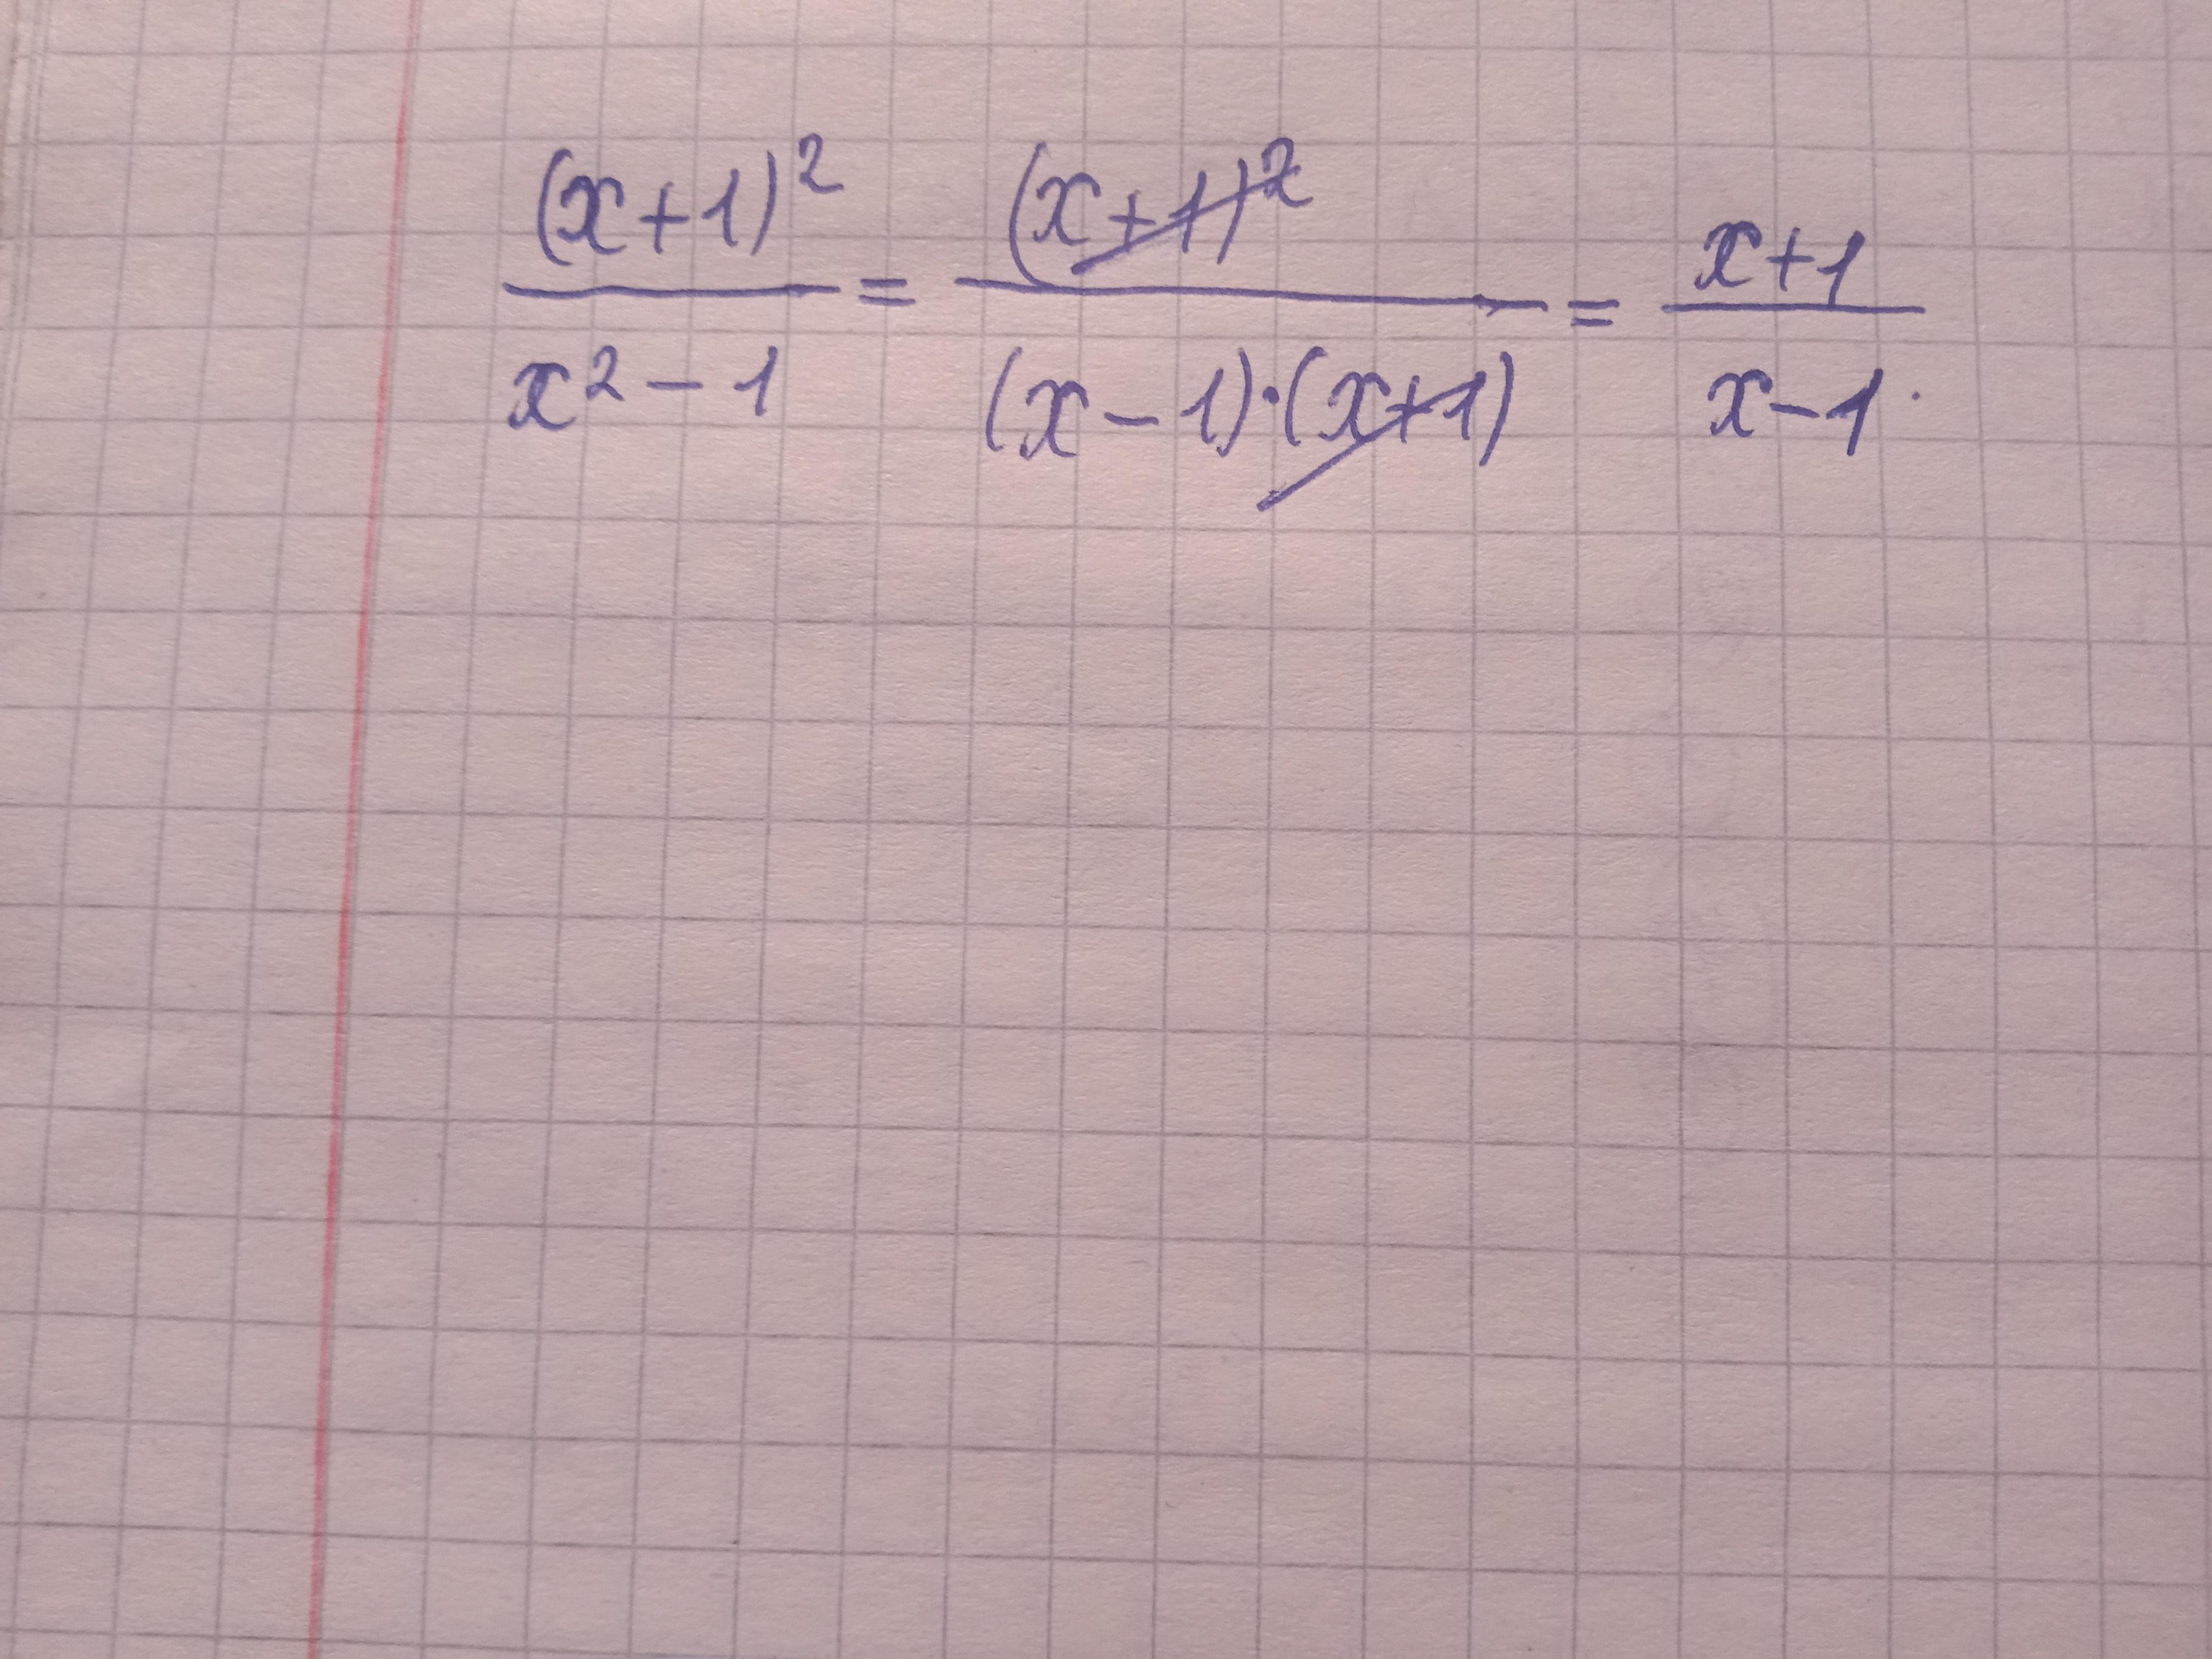 (x+1)²/(x²-1) = (x+1)²/((x-1)·(x+1)) = (x+1)/(x-1).